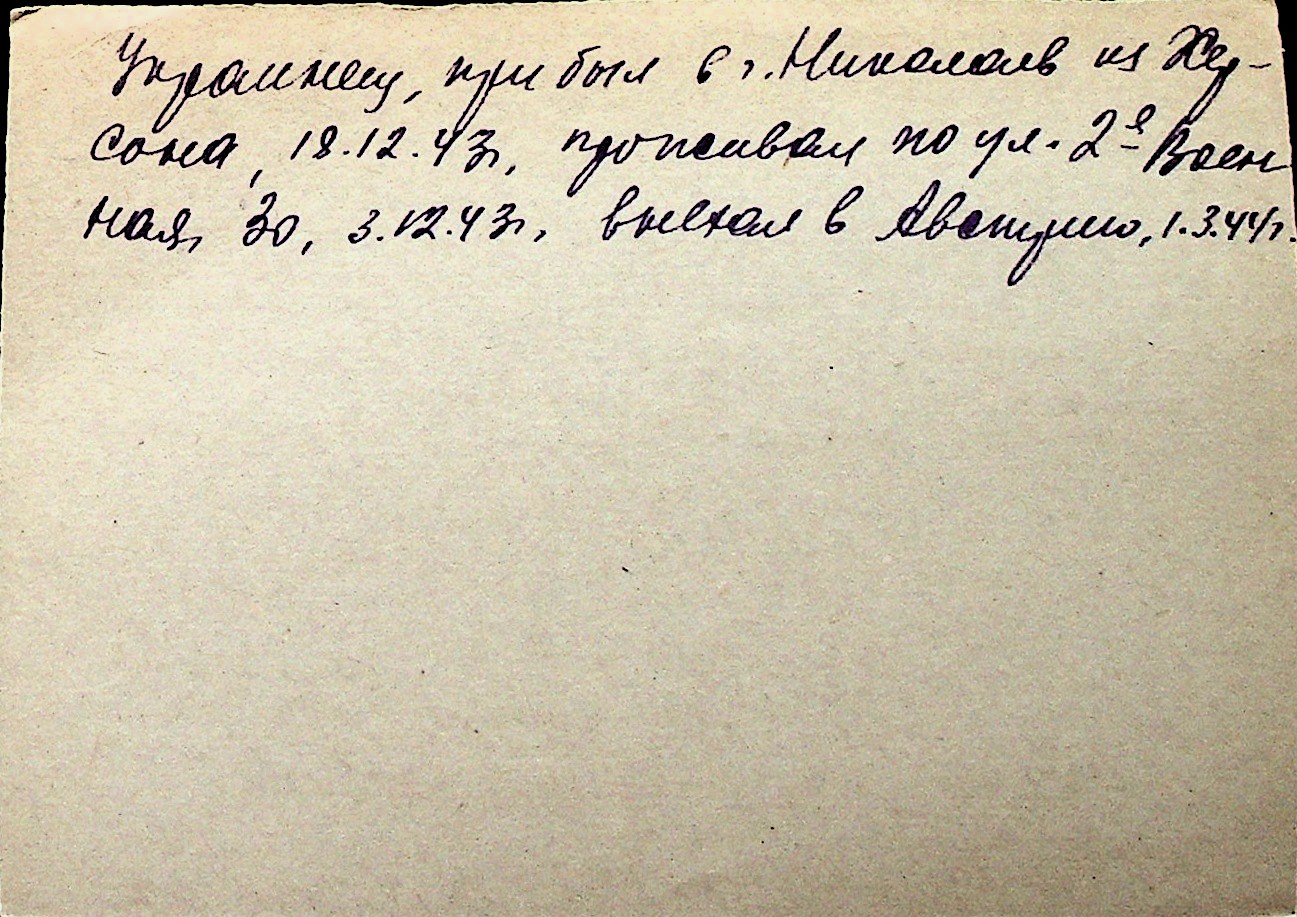 Украинец, прибыл в г. Николаев из Хер-
сона, 18.12.43г, проживал по ул. 2я Воен
ная, 30, 3.12.43г, выехал в Австрию, 1.3.44г.